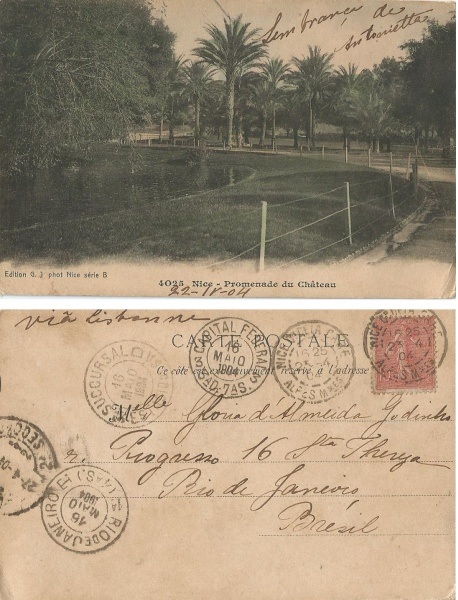 Lembrança de
Antonietta
Edition G. J. phot Nice série B
4025 Nice - Promenade du Château
22-IV-04
viâ Lisbonne
CARTE POSTALE
Ce côté est exclusivement réservé à l'adresse
Melle Gloria d'Almeida Godinho
r. Progresso 16 Sta Thereza
Rio de Janeiro
Brésil
SUCCURSAL
16
MAIO
1904
CAPITAL FEDERAL
16
MAIO
1904
7AS.
NICE
16 25
ALPES MARIT.
NICE
16 25
RIO DE JANEIRO
16
MAIO
1904
27-4-04